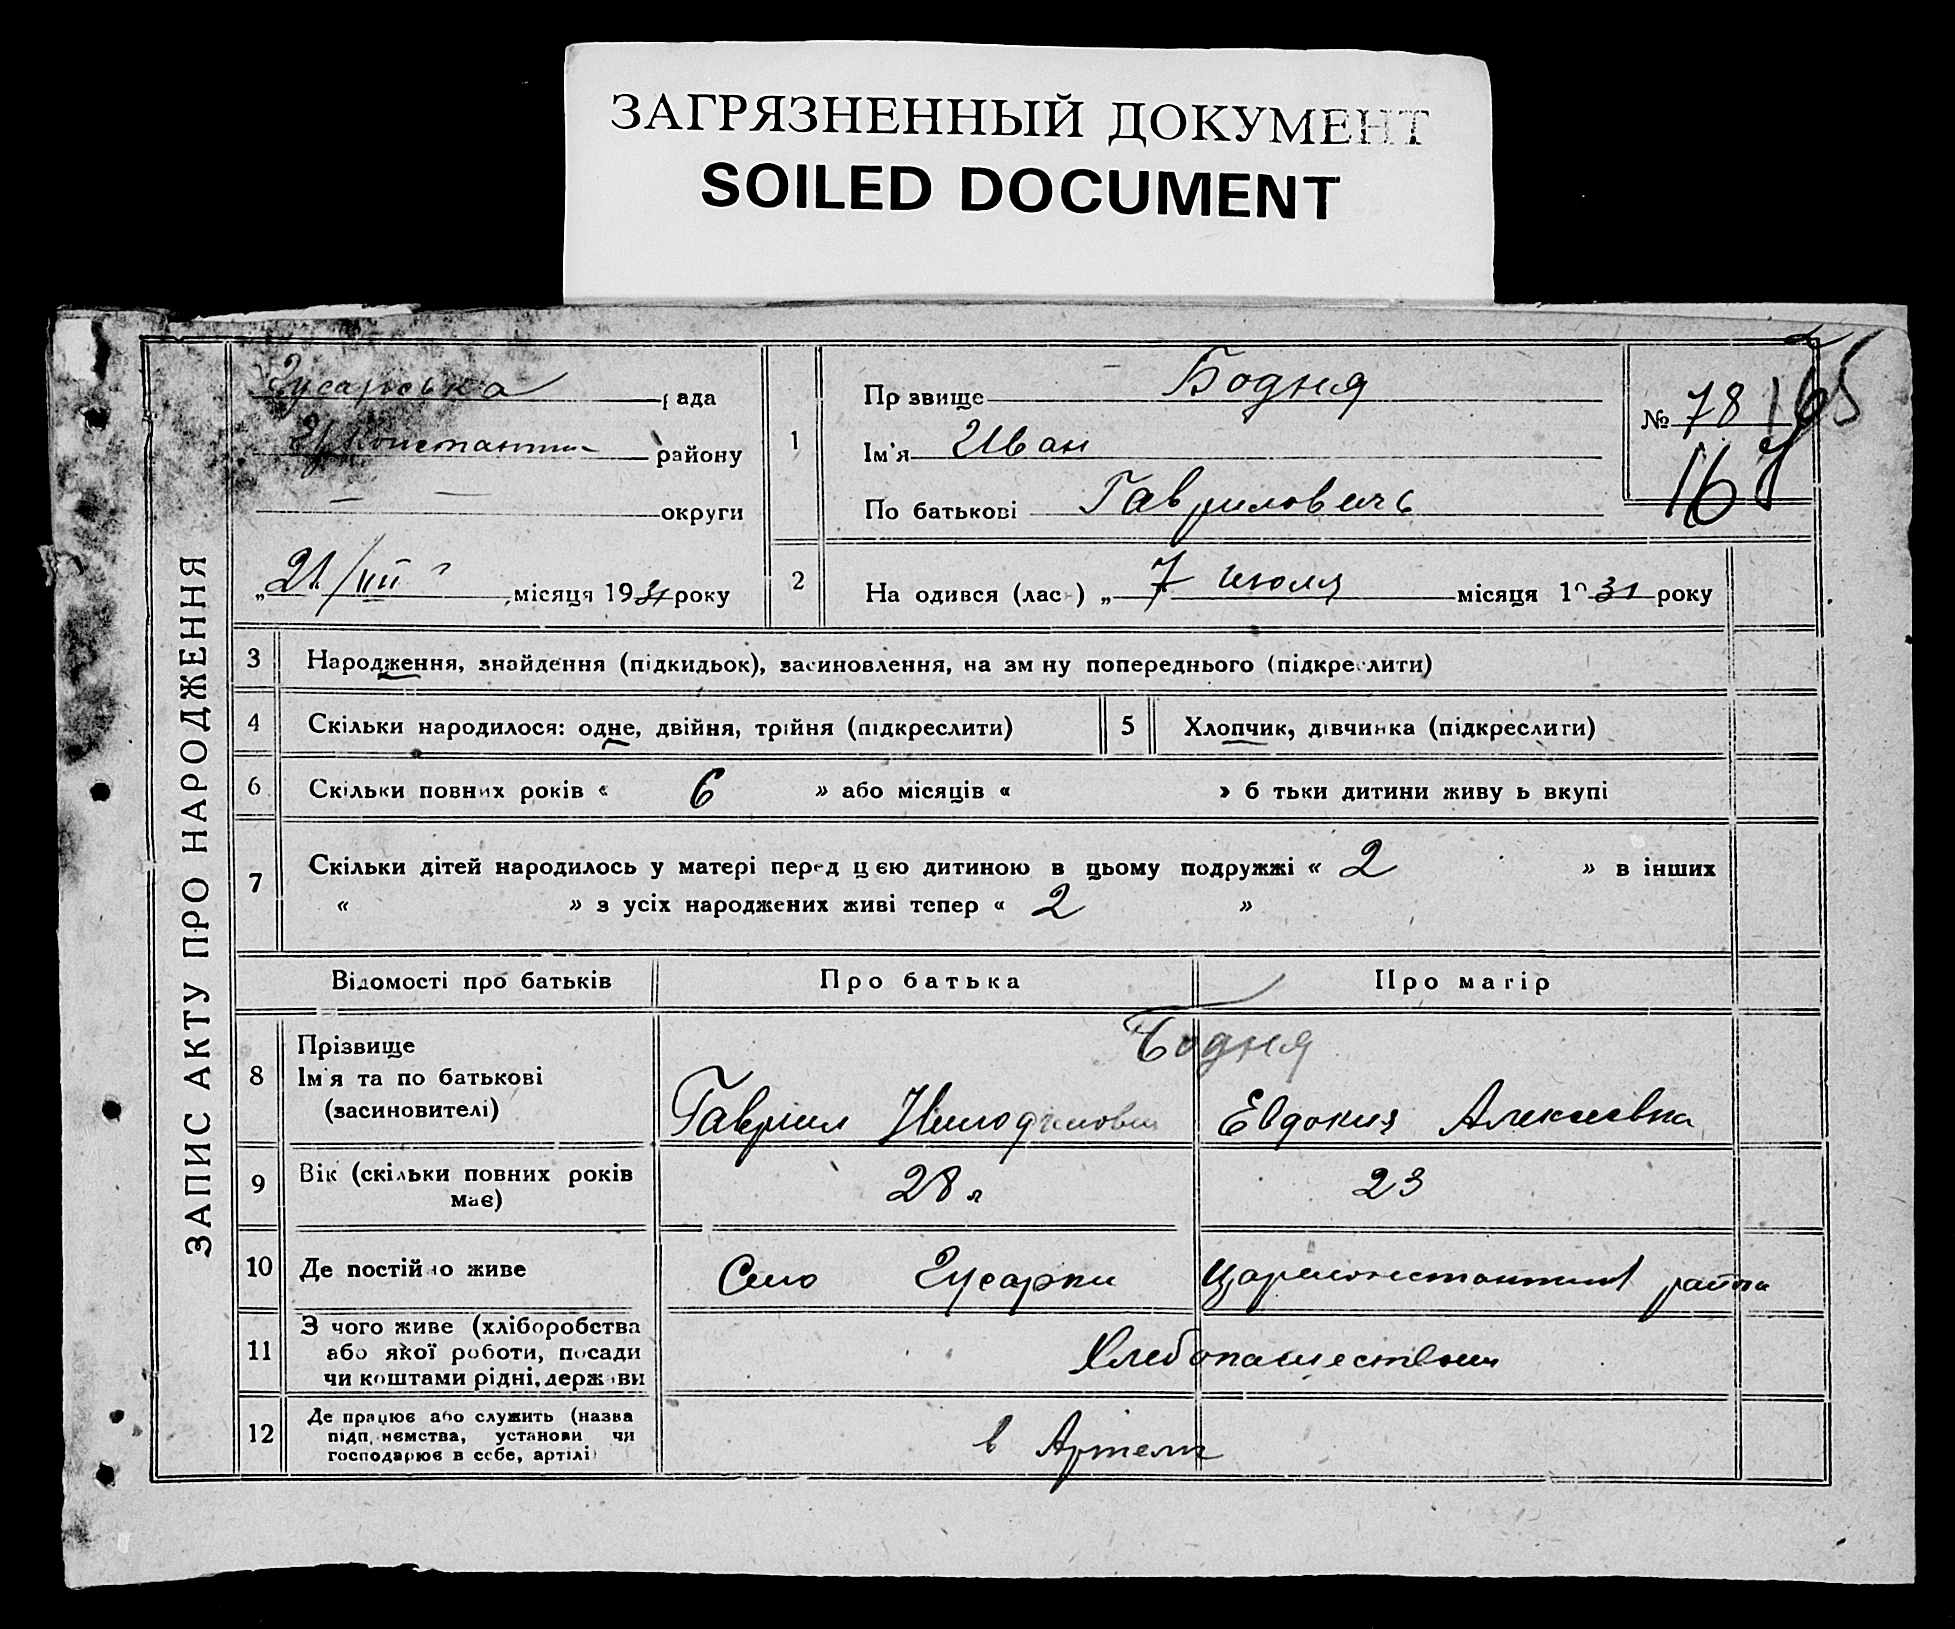 ЗАГРЯЗНЕННЫЙ ДОКУМЕНТ
SOILED DOCUMENT
ЗАПИС АКТУ ПРО НАРОДЖЕННЯ
Гусарська рада
району
округи
„21/VII місяця 1931 року
1
Прзвище Бодня
Ім'я Иван
По батькові Гаврилович
№ 78
165
167
2 На одився (лас ) „ 7 июля місяця 1931 року
3 Народження, знайдення (підкидьок), засиновлення, на зм ну попереднього (підкреслити)
4 Скільки народилося: одне, двійня, трійня (підкреслити) 5 Хлопчик, дівчинка (підкреслити)
6 Скільки повних років « 6 » або місяців « » б тьки дитини живу ь вкупі
7 Скільки дітей народилось у матері перед цією дитиною в цьому подружжі « 2 » в інших
« » з усіх народжених живі тепер « 2 »
Відомості про батьків Про батька Про матір
8 Прізвище
Ім'я та по батькові
(засиновителі)
Бодня
Гавриил Евдокия Алексеевна
9 Вік (скільки повних років
має)
28 л 23
10 Де постійно живе Село Гусарки Цареконстантинов района
11 З чого живе (хліборобства
або якої роботи, посади
чи коштами рідні, держави
Хлебопашеством
12 Де працює або служить (назва
підп.иємства, установи чи
господарює в себе, артілі)
в Артели